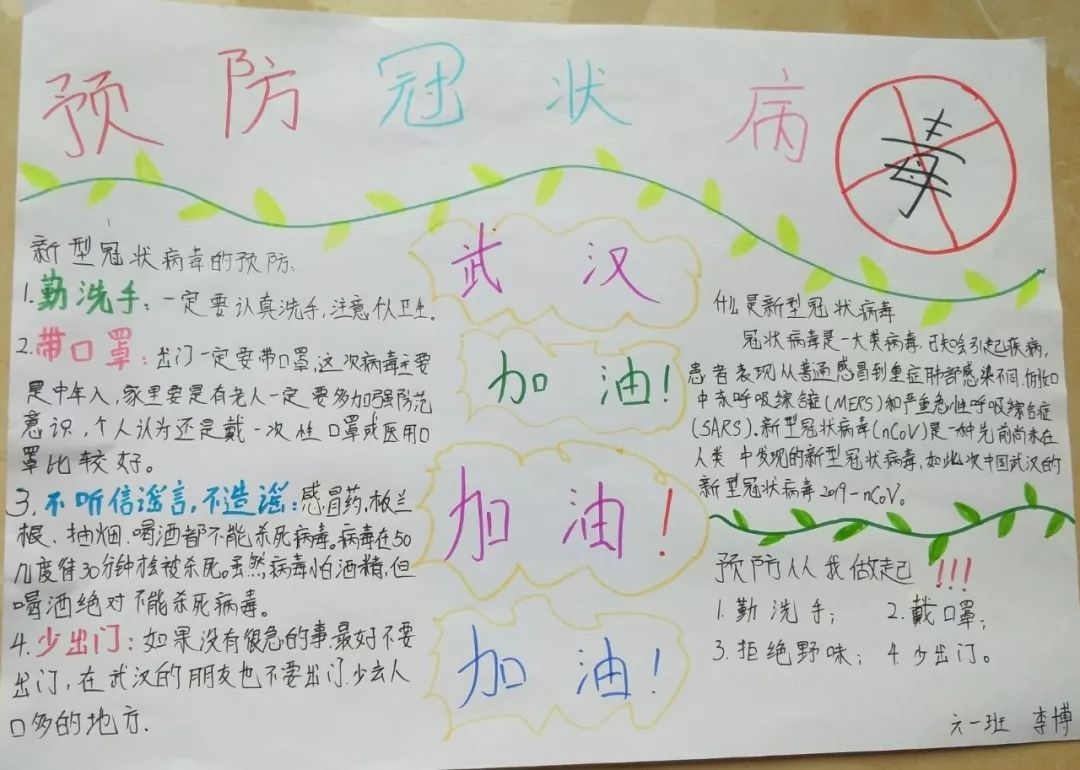 预防冠状病毒
新型冠状病毒的预防:
1.勤洗手:一定要认真洗手,注意个人卫生.
2.带口罩:出门一定要带口罩,这次病毒主要
是中年人,家里要是有老人一定要多加强防范
意识,个人认为还是戴一次性口罩或医用口
罩比较好。
3.不听信谣言,不造谣:感冒药,板兰
根、抽烟、喝酒都不能杀死病毒。病毒在50
几度待30分钟被杀死。虽然病毒怕酒精,但
喝酒绝对不能杀死病毒。
4.少出门:如果没有很急的事.最好不要
出门,在武汉的朋友也不要出门.少去人
口多的地方.
武汉
加油!
加油!
加油!
什么是新型冠状病毒
冠状病毒是一大类病毒,已知会引起疾病,
患者表现从普通感冒到重症肺部感染不同,例如
中东呼吸综合症(MERS)和严重急性呼吸综合症
(SARS).新型冠状病毒(nCoV)是一种先前尚未在
人类中发现的新型冠状病毒,如此次中国武汉的
新型冠状病毒2019-nCoV。
预防从我做起!!!
1.勤洗手; 2.戴口罩;
3.拒绝野味; 4.少出门。
六一班 李博